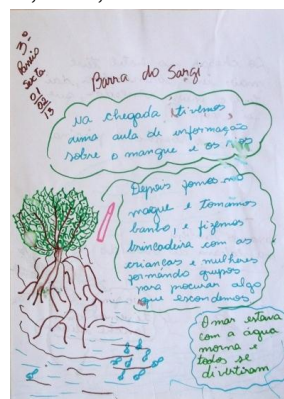 3º
Passeio
sexta
01/02/13
Barra do Sargi
Na chegada tivemos
uma aula de informação
sobre o mangue e os rios
Depois fomos no
mague e tomamos
banho, e fizemos
brincadeira com as
crianças e mulheres
formando grupos
para procurar algo
que escondemos
O mar estava
com a água
morna e
todos se
divertiram